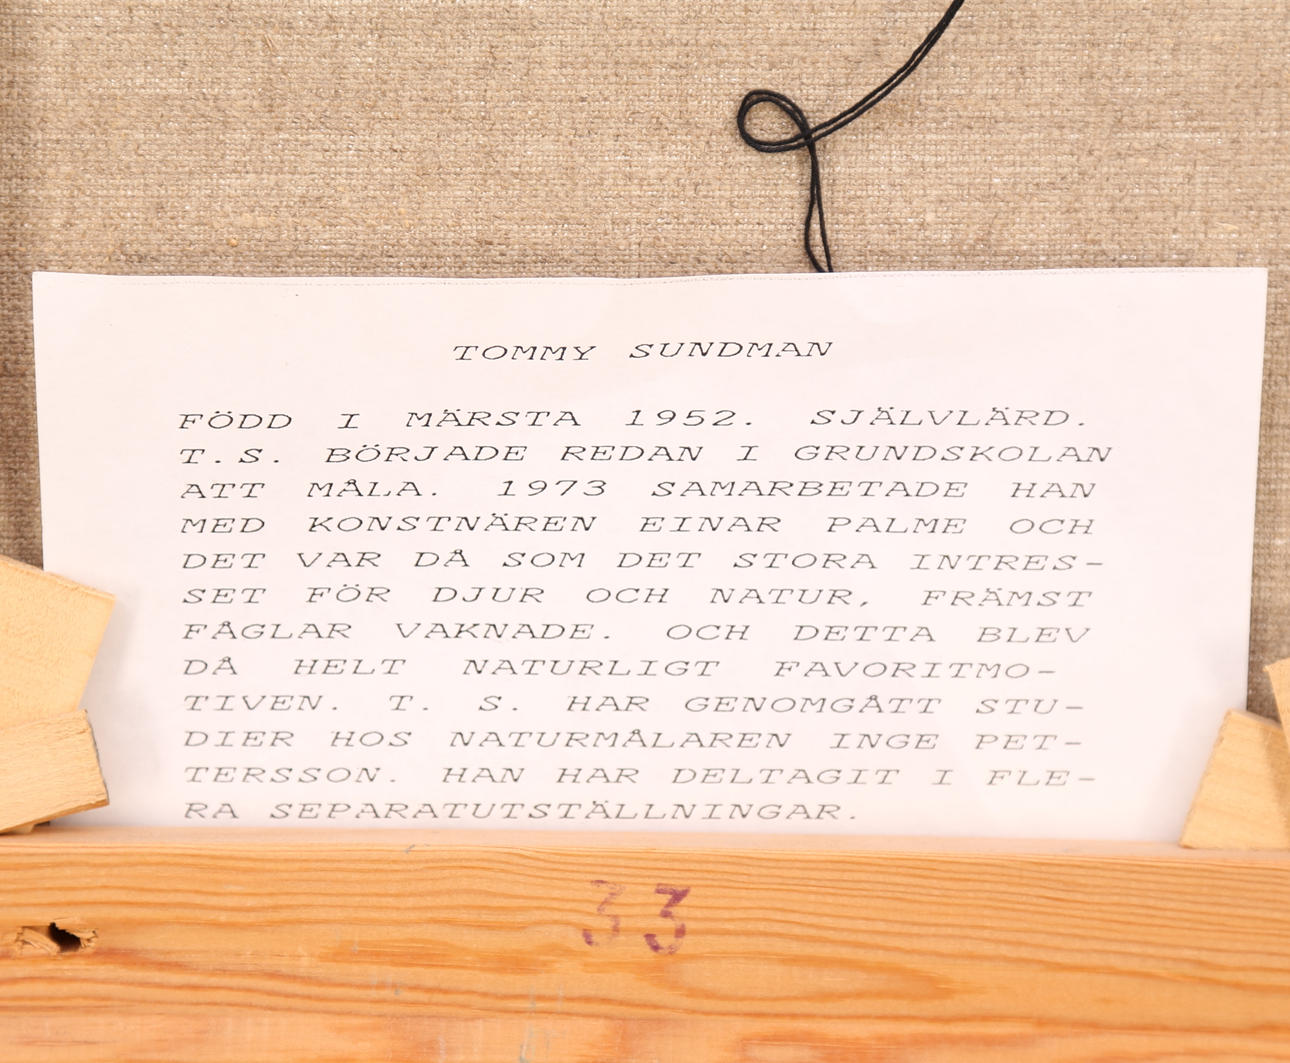 TOMMY SUNDMAN
FÖDD I MÄRSTA 1952. SJÄLVLÄRD.
T.S. BÖRJADE REDAN I GRUNDSKOLAN
ATT MÅLA. 1973 SAMARBETADE HAN
MED KONSTNÄREN EINAR PALME OCH
DET VAR DÅ SOM DET STORA INTRES-
SET FÖR DJUR OCH NATUR, FRÄMST
FÅGLAR VAKNADE. OCH DETTA BLEV
DÅ HELT NATURLIGT FAVORITMO-
TIVEN. T. S. HAR GENOMGÅTT STU-
DIER HOS NATURMÅLAREN INGE PET-
TERSSON. HAN HAR DELTAGIT I FLE-
RA SEPARATUTSTÄLLNINGAR.
33